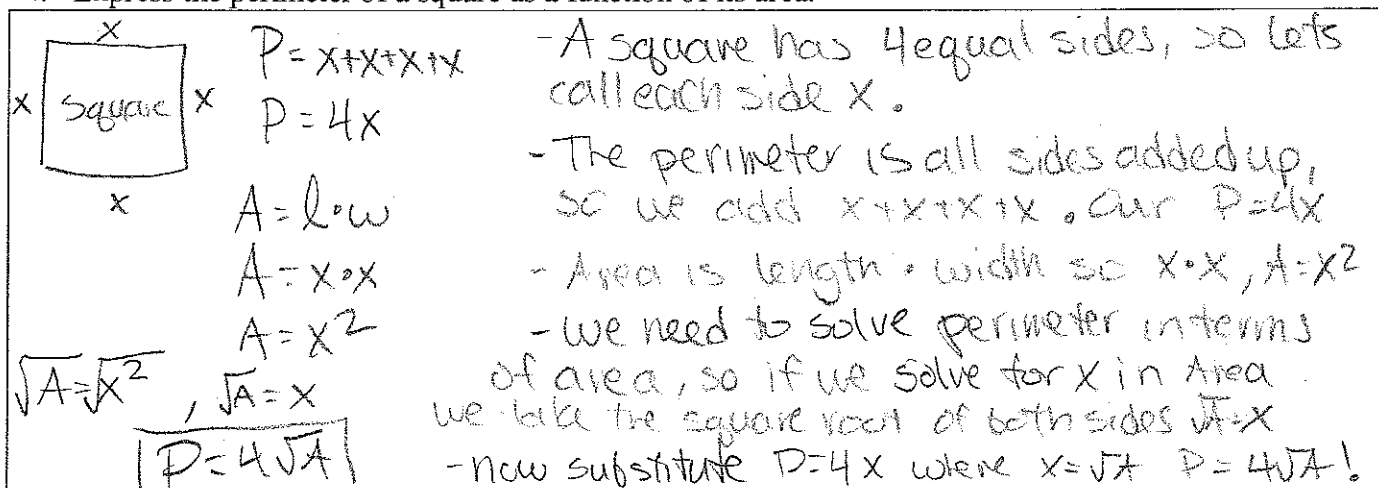 4. Express the perimeter of a square as a function of its area.
x
x Square x
x
P = x+x+x+x
P = 4x
A = l•w
A = x•x
A = x²
√A = √x² , √A = x
P = 4√A
- A square has 4 equal sides, so lets
call each side x.
- The perimeter is all sides added up,
so we add x+x+x+x. Our P=4x
- Area is length • width so x•x, A=x²
- we need to solve perimeter in terms
of area, so if we solve for x in Area
we take the square root of both sides √A=x
- now substitute P=4x where x=√A P=4√A!